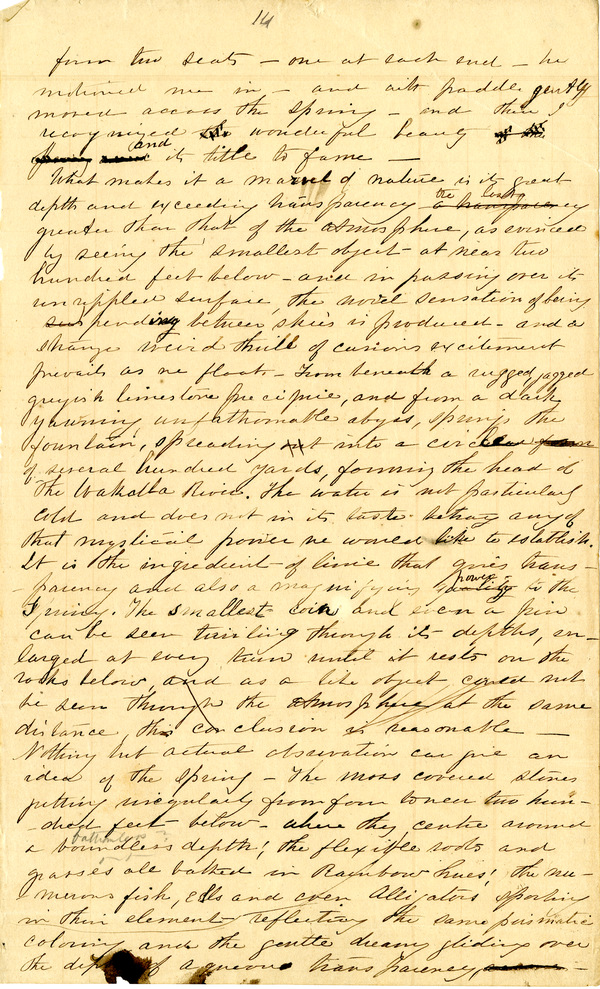 14
form two seats - one at each end - he
motioned me in - and with paddle gently
moved across the spring - and then I
recognized wonderful beauty
and its title to fame -
What makes it a marvel of nature is its great
depth and exceeding transparency the
greater than that of the atmosphere, as evinced
by seeing the smallest object at near two
hundred feet below - and in passing over its
unrippled surface, the novel sensation of being
suspended between skies is produced - and a
strange weird thrill of curious excitement
prevails as we float - From beneath a rugged jagged
greyish limestone precipice, and from a dark
yawning unfathomable abyss, springs the
fountain, spreading out into a circular form
of several hundred yards, forming the head of
the Wakulla River. The water is not particularly
cold and does not in its taste betray any of
that mystical power we would like to establish.
It is the ingredient of lime that gives trans-
-parency and also a magnifying power to the
Spring. The smallest coin and even a pin
can be seen twirling through its depths, en-
larged at every turn until it rests on the
rocks below, and as a like object could not
be seen through the atmosphere at the same
distance, this conclusion is reasonable -
Nothing but actual observation can give an
idea of the spring - The moss covered stones
jutting irregularly from four to near two hun-
-dred feet below - where they centre around
a boundless bottomless depth! the flexible roots and
grasses all bathed in Rainbow hues! the nu-
merous fish, eels and even Alligators sporting
in their element reflecting the same prismatic
coloring and the gentle dreamy gliding over
the of aqueous transparency, -